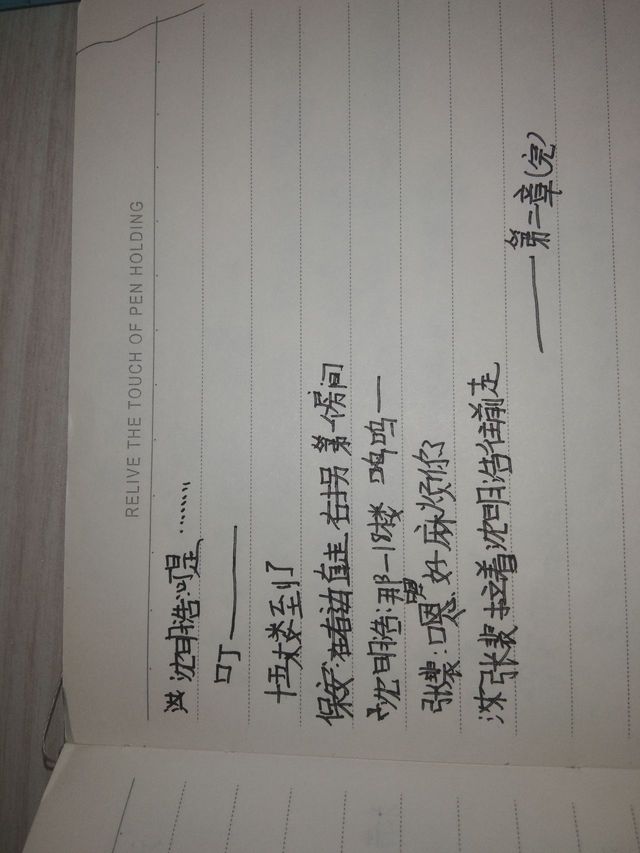 RELIVE THE TOUCH OF PEN HOLDING
沈明浩:可是………
叮——
十五楼到了
保安:在右边直走右拐第一个房间
沈明浩:那一18楼 呜呜—
张裴:嗯嗯 好麻烦你了
张裴拉着沈明浩往前走
——第二章(完)